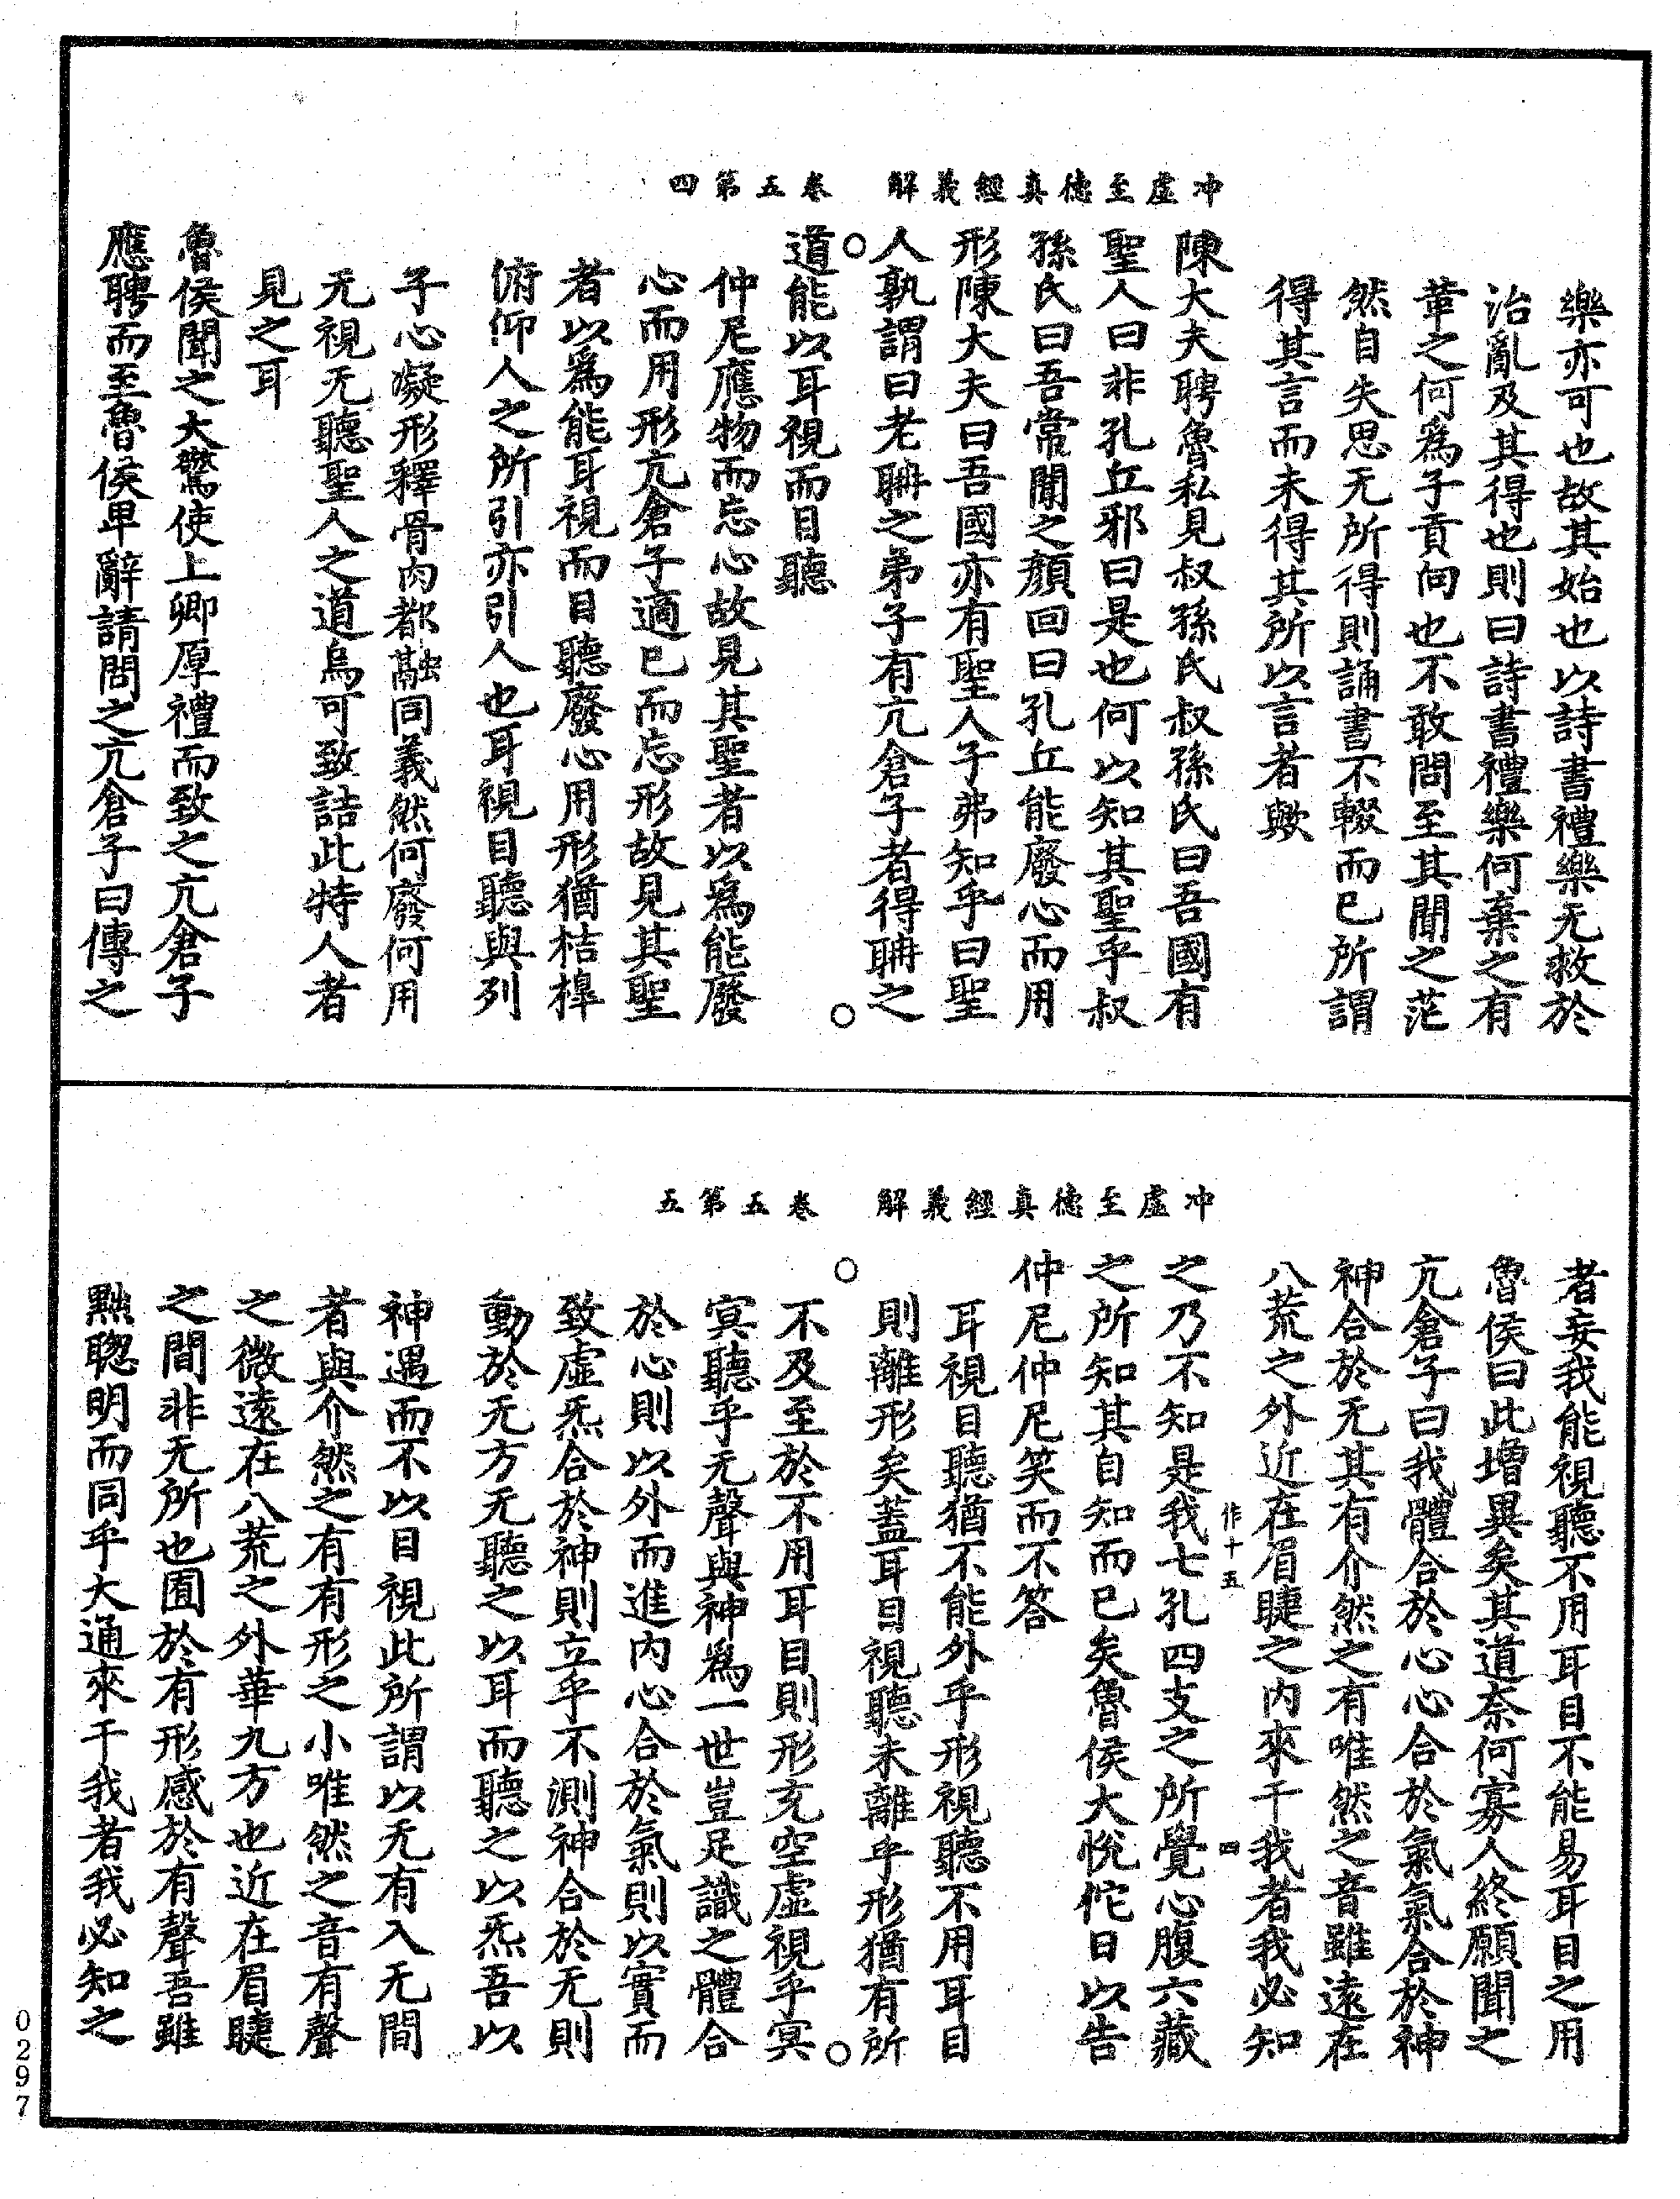 樂亦可也故其始也以詩書禮樂无救於
治亂及其得也則曰詩書禮樂何棄之有
革之何爲子貢向也不敢問至其聞之茫
然自失思无所得則誦書不輟而已所謂
得其言而未得其所以言者歟
冲虛至德真經義解　卷五第四
陳大夫聘魯私見叔孫氏叔孫氏曰吾國有
聖人曰非孔丘邪曰是也何以知其聖乎叔
孫氏曰吾常聞之顏回曰孔丘能廢心而用
形陳大夫曰吾國亦有聖人子弗知乎曰聖
人孰謂曰老聃之弟子有亢倉子者得聃之
○
道能以耳視而目聽
○
仲尼應物而忘心故見其聖者以爲能廢
心而用形亢倉子適已而忘形故見其聖
者以爲能耳視而目聽廢心用形猶桔槹
俯仰人之所引亦引人也耳視目聽與列
子心凝形釋骨肉都融同義然何廢何用
无視无聽聖人之道烏可致詰此特人者
見之耳
魯侯聞之大驚使上卿厚禮而致之亢倉子
應聘而至魯侯卑辭請問之亢倉子曰傳之
者妄我能視聽不用耳目不能易耳目之用
魯侯曰此增異矣其道奈何寡人終願聞之
亢倉子曰我體合於心心合於氣氣合於神
神合於无其有介然之有唯然之音雖遠在
八荒之外近在眉睫之内來干我者我必知
作十五　四
冲虛至德真經義解　卷五第五
之乃不知是我七孔四支之所覺心腹六藏
之所知其自知而已矣魯侯大悅佗日以告
仲尼仲尼笑而不答
耳視目聽猶不能外乎形視聽不用耳目
則離形矣蓋耳目視聽未離乎形猶有所
○
不及至於不用耳目則形充空虛視乎冥
○
冥聽乎无聲與神爲一世豈足識之體合
於心則以外而進内心合於氣則以實而
致虛炁合於神則立乎不測神合於无則
動於无方无聽之以耳而聽之以炁吾以
神遇而不以目視此所謂以无有入无間
者與介然之有有形之小唯然之音有聲
之微遠在八荒之外華九方也近在眉睫
之間非无所也囿於有形感於有聲吾雖
黜聰明而同乎大通來干我者我必知之
0297